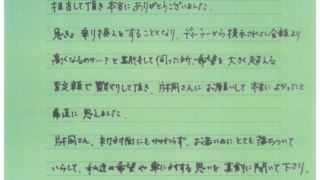 担当して頂き本当にありがとうございました。
急きょ乗り換えをすることとなり、ディーラーから提示された金額より
高くなるのか…?と期待して伺った所、希望を大きく超える
査定額で買取りして頂き、片岡さんにお願いして本当によかったと
素直に思えました。
片岡さん、初対面にもかかわらず、お若いのにとても落ちついて
いらして、私達の希望や車に対する思いを真剣に聞いて下さり、